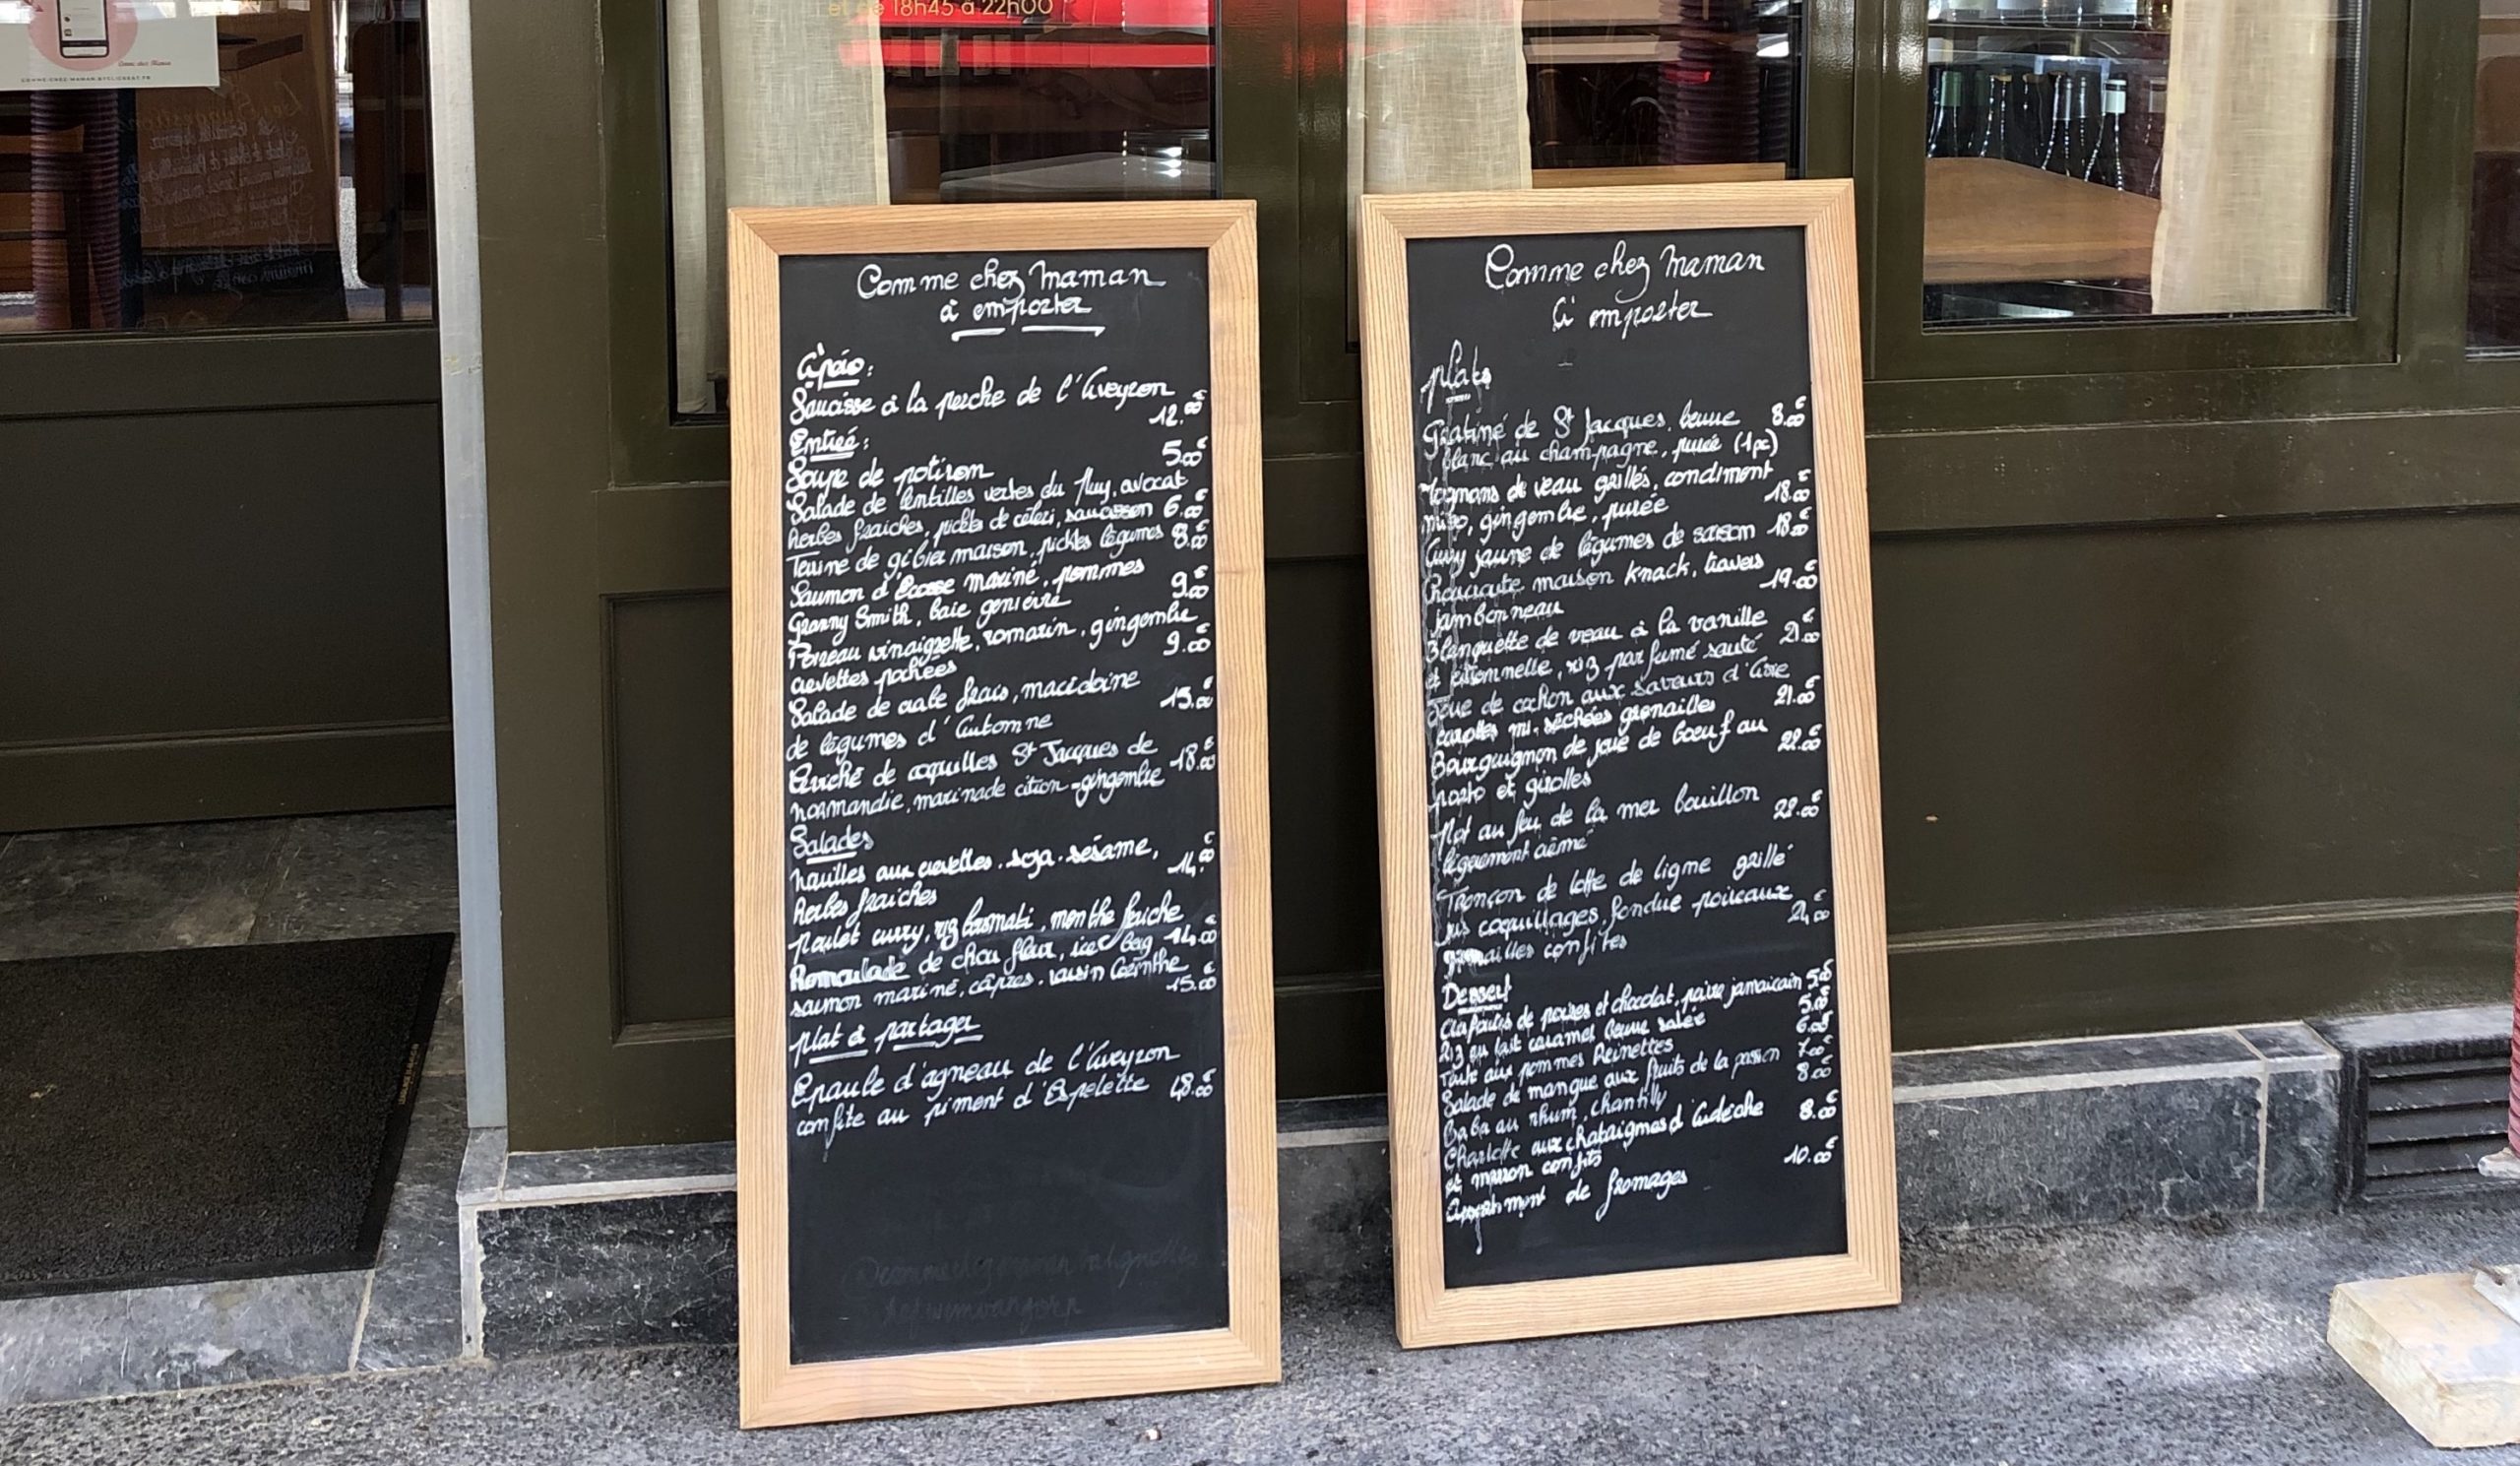 et de 18h45 à 22h00
COMME-CHEZ-MAMAN.BYCLICKEAT.FR
Comme chez maman
à emporter
Apéro:
Saucisse à la perche de l'Aveyron
12.00€
Entreé:
Soupe de potiron 5.00€
Salade de lentilles vertes du Puy, avocat
herbes fraiches, pickles de céleri, saucisson 6.00€
Terrine de gibier maison, pickles légumes 8.00€
Saumon d'Ecosse mariné, pommes
Granny Smith, baie genièvre 9.00€
Poireau vinaigrette, romarin, gingembre
crevettes pochées 9.00€
Salade de crabe frais, macédoine
de légumes d'Automne 15.00€
Ceviché de coquilles St Jacques de
normandie, marinade citron-gingembre 18.00€
Salades
nouilles aux crevettes. soja. sésame,
herbes fraiches 14.00€
Poulet curry, riz basmati, menthe fraiche
Remoulade de chou fleur, ice berg 14.00€
saumon mariné, câpres, raisin Corinthe
15.00€
plat à partager
Epaule d'agneau de l'Aveyron
confite au piment d'Espelette 48.00€
Comme chez maman
à emporter
plats
Gratiné de St Jacques, beurre 8.00€
blanc au champagne, purée (1pc)
Rognons de veau grillés, condiment
miso, gingembre, purée 18.00€
Curry jaune de légumes de saison 18.00€
Choucroute maison knack, travers
jambonneau 19.00€
Blanquette de veau à la vanille
et citronnelle, riz parfumé sauté 21.00€
Joue de cochon aux saveurs d'Asie
carottes mi-séchées grenailles 21.00€
Bourguignon de joue de boeuf au
porto et girolles 22.00€
Pot au feu de la mer bouillon
légèrement crémé 22.00€
Tronçon de lotte de ligne grillé
jus coquillages, fondue poireaux
grenailles confites
Dessert
Clafoutis de poires et chocolat, poivre jamaicain 5.00€
Riz au lait caramel beurre salée 5.00€
Tarte aux pommes Reinettes 6.00€
Salade de mangue aux fruits de la passion 7.00€
Baba au rhum, chantilly 8.00€
Charlotte aux chataignes d'Ardèche
et marron confits 8.00€
Assortiment de fromages 10.00€